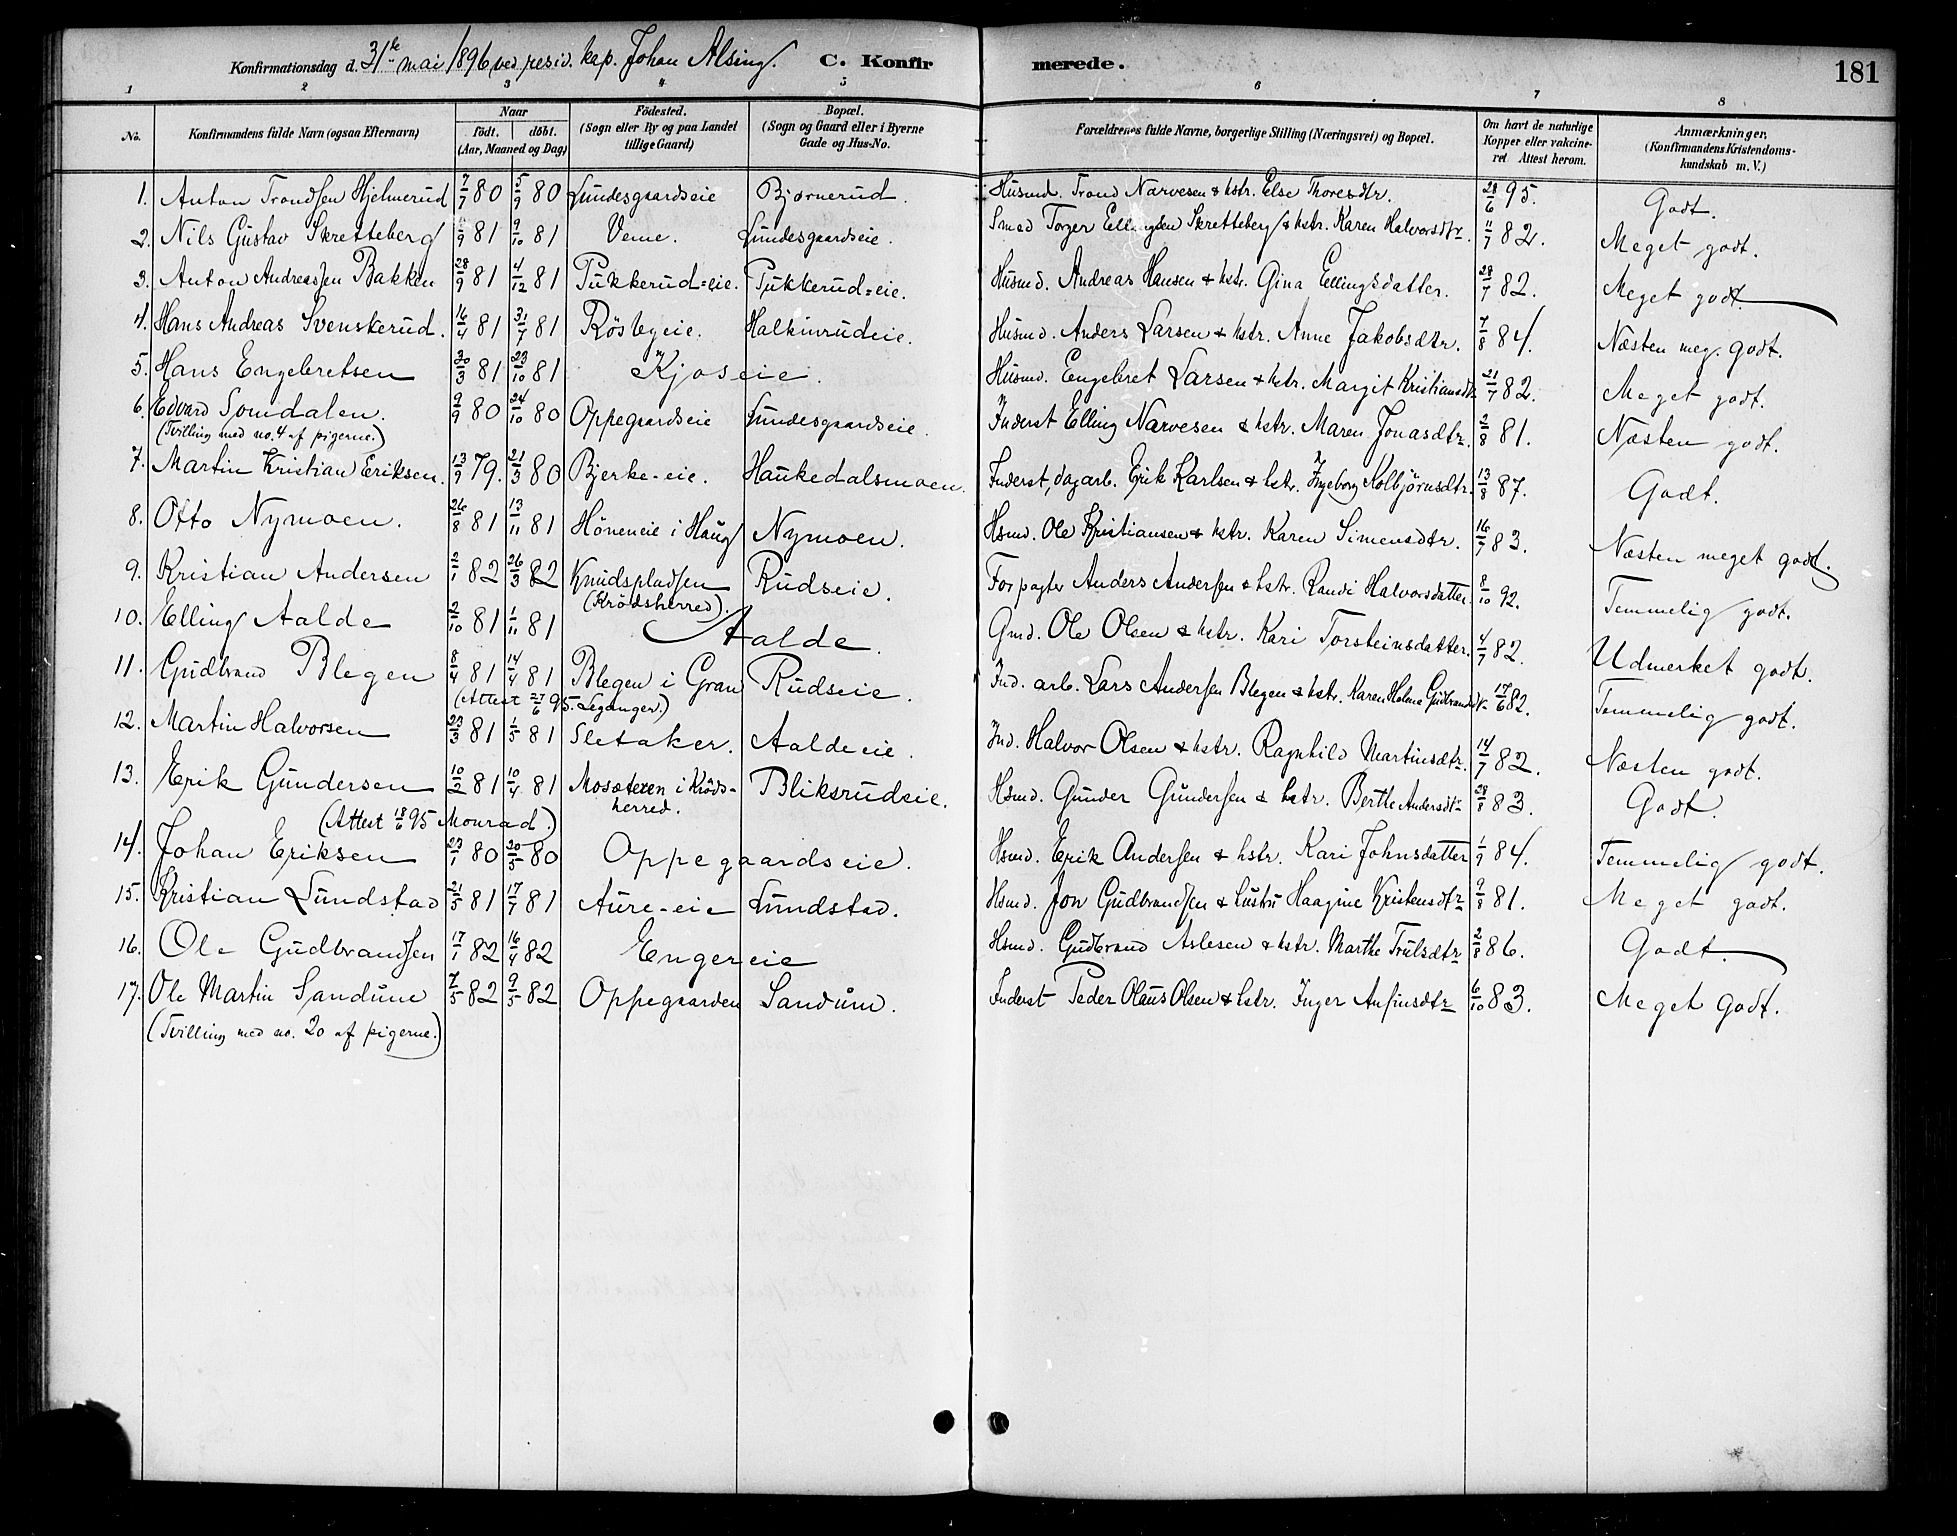 Konfirmationsdag d. 31te mai 1896 ved resid. kap. Johan Alsing. C. Konfirmerede. 181
1 2 3 4 5 6 7 8
No. Konfirmandens fulde Navn (ogsaa Efternavn) Naar födt. döbt. (Aar, Maaned og Dag) Födested. (Sogn eller By og paa Landet tillige Gaard) Bopæl. (Sogn og Gaard eller i Byerne Gade og Hus-No. Forældrenes fulde Navne, borgerlige Stilling (Næringsvei) og Bopæl. Om havt de naturlige Kopper eller vakcineret Attest herom. Anmærkninger. (Konfirmandens Kristendomskundskab m. V.)
1. Anton Trondsen Hjelmerud 7/7 80 5/9 80 Lundesgaardseie Bjørnerud. Husmd. Trond Narvesen & hstr. Else Thoresdtr. 28/6 95. Godt.
2. Nils Gustav Skretteberg /9 81 9/10 81 Veme. Lundesgaardseie. Smed Torger Ellingsen Skretteberg & hstr. Karen Halvorsdtr. 11/7 82. Meget godt.
3. Anton Andreassen Bakken 28/9 81 4/12 81 Pukkerud=eie. Pukkerud=eie. Husmd. Andreas Hansen & hstr. Gina Ellingsdatter. 28/7 82. Meget godt
4. Hans Andreas Svenskerud. 16/4 81 31/7 81 Rösbyeie. Halkinrudeie. Husmd. Anders Larsen & hstr. Anne Jakobsdtr. 7/8 84. Næsten meg. godt.
5. Hans Engebretsen 30/3 81 23/10 81 Kjoseie. Husmd. Engebret Larsen & hstr. Margit Kristiansdtr 21/7 82. Meget godt.
6. Edvard Somdalen. 9/9 80 24/10 80 Oppegaardseie Lundesgaardseie. Inderst Elling Narvesen & hstr. Maren Jonasdtr. 2/8 81. Næsten godt.
(Tvilling med no. 4 af pigerne.)
7. Martin Kristian Eriksen. 13/9 79. 21/3 80 Bjerke-eie. Haukedalsmoen. Inderst, dagarb. Erik Karlsen & hstr. Ingeborg Kolbjörnsdtr. 13/8 87. Godt.
8. Otto Nymoen. 26/8 81 13/11 81 Höneneie i Haug Nymoen. Hsmd. Ole Kristiansen & hstr. Karen Simensdtr. 16/7 83. Næsten meget godt.
9. Kristian Andersen 2/1 82 26/3 82 Knudspladsen Rudseie. Forpagter Anders Andersen & hstr. Randi Halvorsdatter. 8/10 92. Temmelig godt.
(Krödsherred).
10. Elling Aalde 2/10 81 1/11 81 Aalde. Gmd. Ole Olsen & hstr. Kari Torsteinsdatter. 4/7 82. Udmerket godt.
11. Gudbrand Blegen 8/4 81 14/4 81 Blegen i Gran Rudseie. Ind. arb. Lars Andersen Blegen & hstr. Karen Helene Gudbrandsdtr 17/6 82. Temmelig godt.
(Attest 27/6 95. Leganger.)
12. Martin Halvorsen 23/3 81 1/5 81 Sletaker. Aaldeeie. Ind. Halvor Olsen & hstr. Ragnhild Martinsdtr. 14/7 82. Næsten godt.
13. Erik Gundersen 10/2 81 10/4 81 Mosæteren i Krödsherred. Bliksrudeie. Hsmd. Gunder Gundersen & hstr. Berthe Andersdtr 28/8 83. Godt.
(Attest 18/6 95 Monrad.)
14. Johan Eriksen 23/1 80 20/5 80 Oppegaardseie. Hsmd. Erik Andersen & hstr. Kari Johnsdatter 1/9 84. Temmelig godt.
15. Kristian Lundstad 21/5 81 17/7 81 Aure-eie Lundstad. Hsmd. Jon Gudbrandsen & hustru Haagine Kristensdtr 9/8 81. Meget godt.
16. Ole Gudbrandsen 17/1 82 16/4 82 Engereie Hsmd. Gudbrand Aslesen & hstr. Marthe Trulsdtr 2/8 86. Godt.
17. Ole Martin Sandum 7/5 82 9/5 82 Oppegaarden Sandum. Inderst Peder Olaus Olsen & hstr. Inger Anfinsdtr 6/10 83. Meget godt.
(Tvilling med no. 20 af pigerne.)